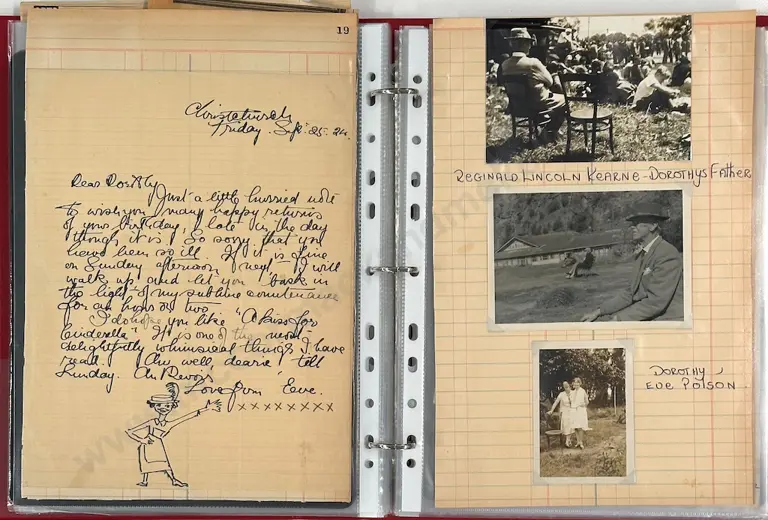 19
Christchurch
Friday. Sept. 25. 24.
Dear Dorothy
Just a little hurried note
to wish you many happy returns
of your birthday, late in the day
though it is! So sorry that you
have been so ill. If it is fine
on Sunday afternoon next I will
walk up and let you "bask in
the light of my sublime countenance
for an hour or two.
I do hope you like "A Kiss for
Cinderella" It is one of the most
delightfully whimsical things I have
read. Au well dearie! till
Sunday. Au Revoir
Love from Eve.
xxxxxxxx
REGINALD LINCOLN KEARNE - DOROTHYS FATHER
DOROTHY,
EVE POISON